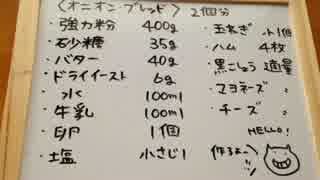 〈オニオン・ブレッド〉2個分
・強力粉 400g
・砂糖 35g
・バター 40g
・ドライイースト 6g
・水 100ml
・牛乳 100ml
・卵 1個
・塩 小さじ1
・玉ねぎ 小1個
・ハム 4枚
・黒こしょう 適量
・マヨネーズ 〃
・チーズ 〃
HELLO!
作るよー